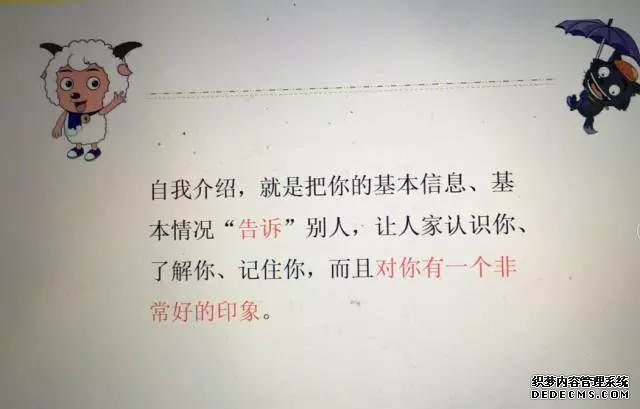 自我介绍，就是把你的基本信息、基
本情况“告诉”别人，让人家认识你、
了解你、记住你，而且对你有一个非
常好的印象。
织梦内容管理系统
DEDECMS.COM